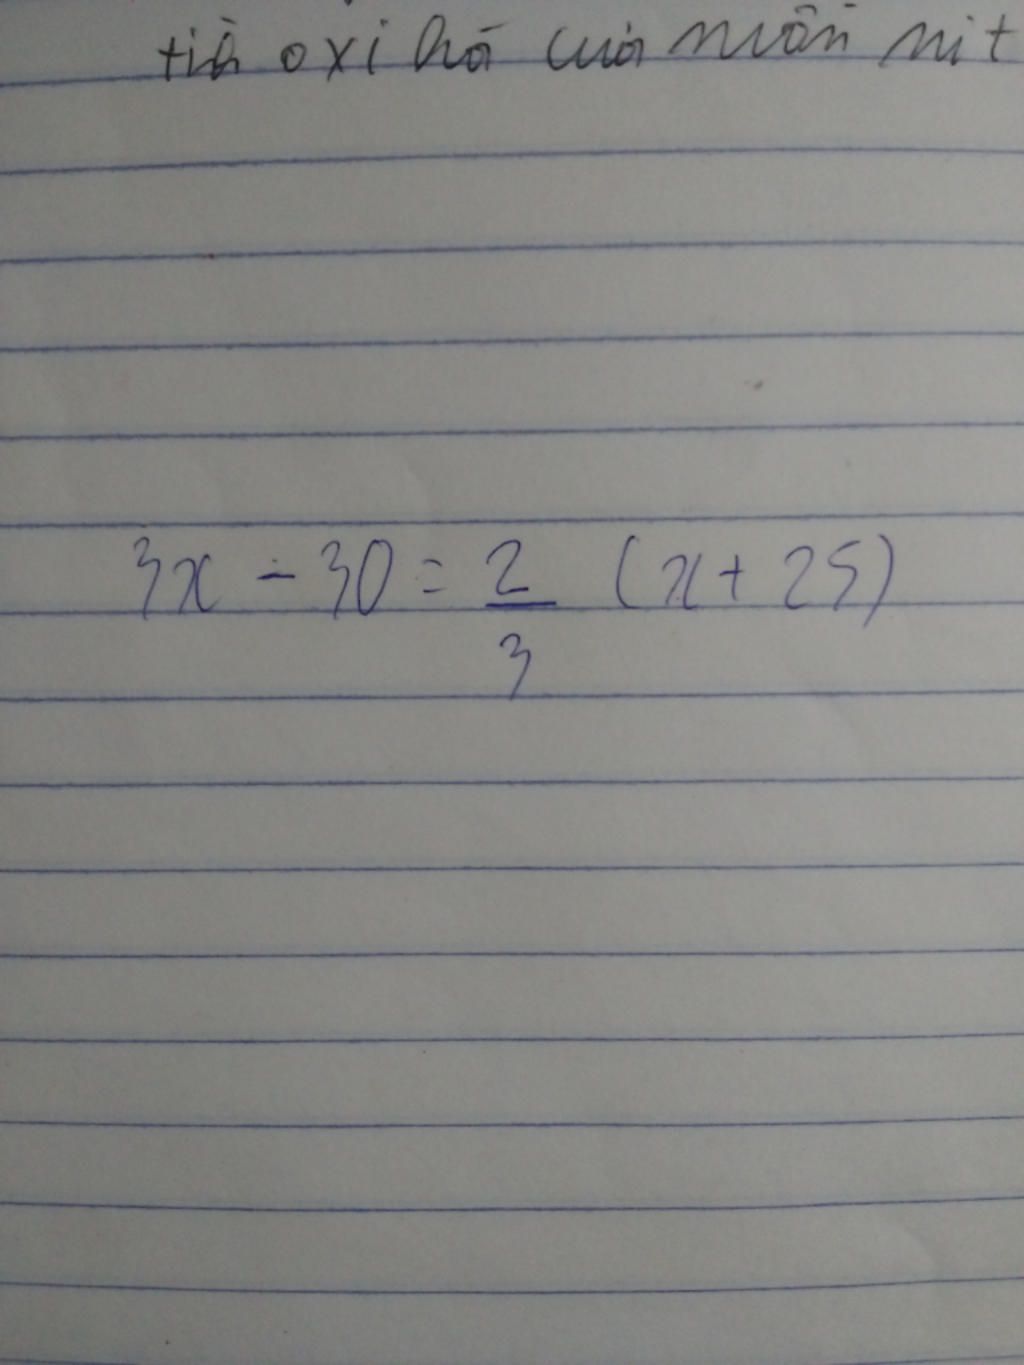 oxi hoá của muối nit
3x - 30 = 2/3 (x + 25)